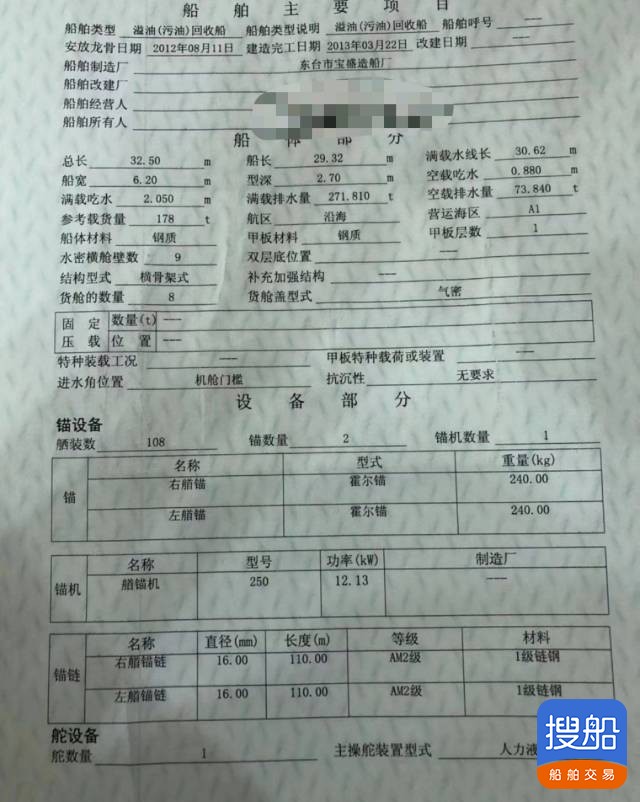 船 舶 主 要 项 目
船舶类型 溢油(污油)回收船 船舶类型说明 溢油(污油)回收船 船舶呼号 ---
安放龙骨日期 2012年08月11日 建造完工日期 2013年03月22日 改建日期 ---
船舶制造厂 东台市宝盛造船厂
船舶改建厂
船舶经营人
船舶所有人
船 体 部 分
总长 32.50 m 船长 29.32 m 满载水线长 30.62 m
船宽 6.20 m 型深 2.70 m 空载吃水 0.880 m
满载吃水 2.050 m 满载排水量 271.810 t 空载排水量 73.840 t
参考载货量 178 t 航区 沿海 营运海区 A1
船体材料 钢质 甲板材料 钢质 甲板层数 1
水密横舱壁数 9 双层底位置 ---
结构型式 横骨架式 补充加强结构 ---
货舱的数量 8 货舱盖型式 气密
固 定 数量(t) ---
压 载 位 置 ---
特种装载工况 --- 甲板特种载荷或装置 ---
进水角位置 机舱门槛 抗沉性 无要求
设 备 部 分
锚设备
舾装数 108 锚数量 2 锚机数量 1
锚 名称 型式 重量(kg)
右艏锚 霍尔锚 240.00
左艏锚 霍尔锚 240.00
锚机 名称 型号 功率(kW) 制造厂
艏锚机 250 12.13 ---
锚链 名称 直径(mm) 长度(m) 等级 材料
右艏锚链 16.00 110.00 AM2级 1级链钢
左艏锚链 16.00 110.00 AM2级 1级链钢
舵设备
舵数量 1 主操舵装置型式 人力液
搜船
船舶交易